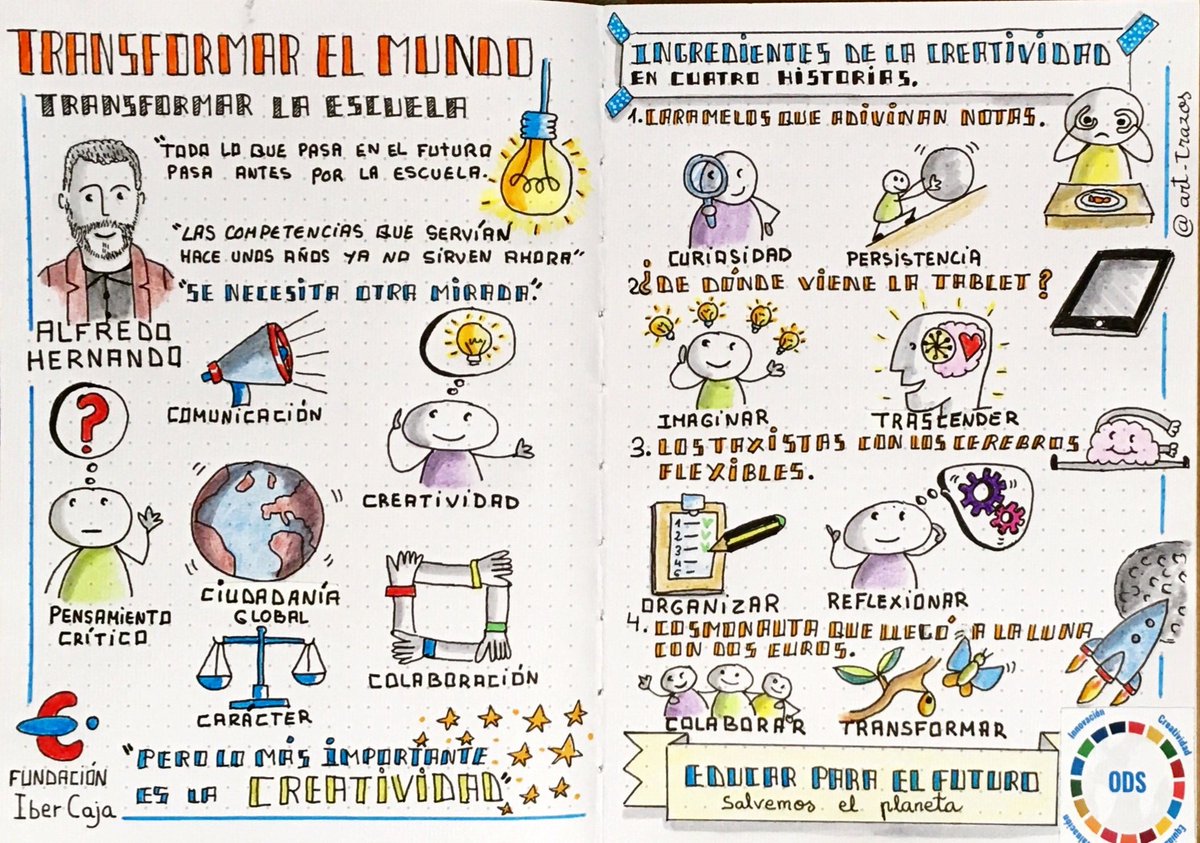 TRANSFORMAR EL MUNDO
TRANSFORMAR LA ESCUELA
"TODO LO QUE PASA EN EL FUTURO
PASA ANTES POR LA ESCUELA.
"LAS COMPETENCIAS QUE SERVÍAN
HACE UNOS AÑOS YA NO SIRVEN AHORA"
"SE NECESITA OTRA MIRADA."
ALFREDO
HERNANDO
COMUNICACIÓN
CREATIVIDAD
?
PENSAMIENTO
CRÍTICO
CIUDADANÍA
GLOBAL
COLABORACIÓN
CARÁCTER
FUNDACIÓN
IberCaja
"PERO LO MÁS IMPORTANTE
ES LA CREATIVIDAD"
INGREDIENTES DE LA CREATIVIDAD
EN CUATRO HISTORIAS.
1. CARAMELOS QUE ADIVINAN NOTAS.
@art-trazos
CURIASIDAD
PERSISTENCIA
2. ¿DE DÓNDE VIENE LA TABLET?
IMAGINAR
TRASCENDER
3. LOS TAXISTAS CON LOS CEREBROS
FLEXIBLES.
1
2
3
4
5
ORGANIZAR
REFLEXIONAR
4. COSMONAUTA QUE LLEGÓ A LA LUNA
CON DOS EUROS.
COLABORAR
TRANSFORMAR
EDUCAR PARA EL FUTURO
Salvemos el planeta
Innovación
Creatividad
ODS